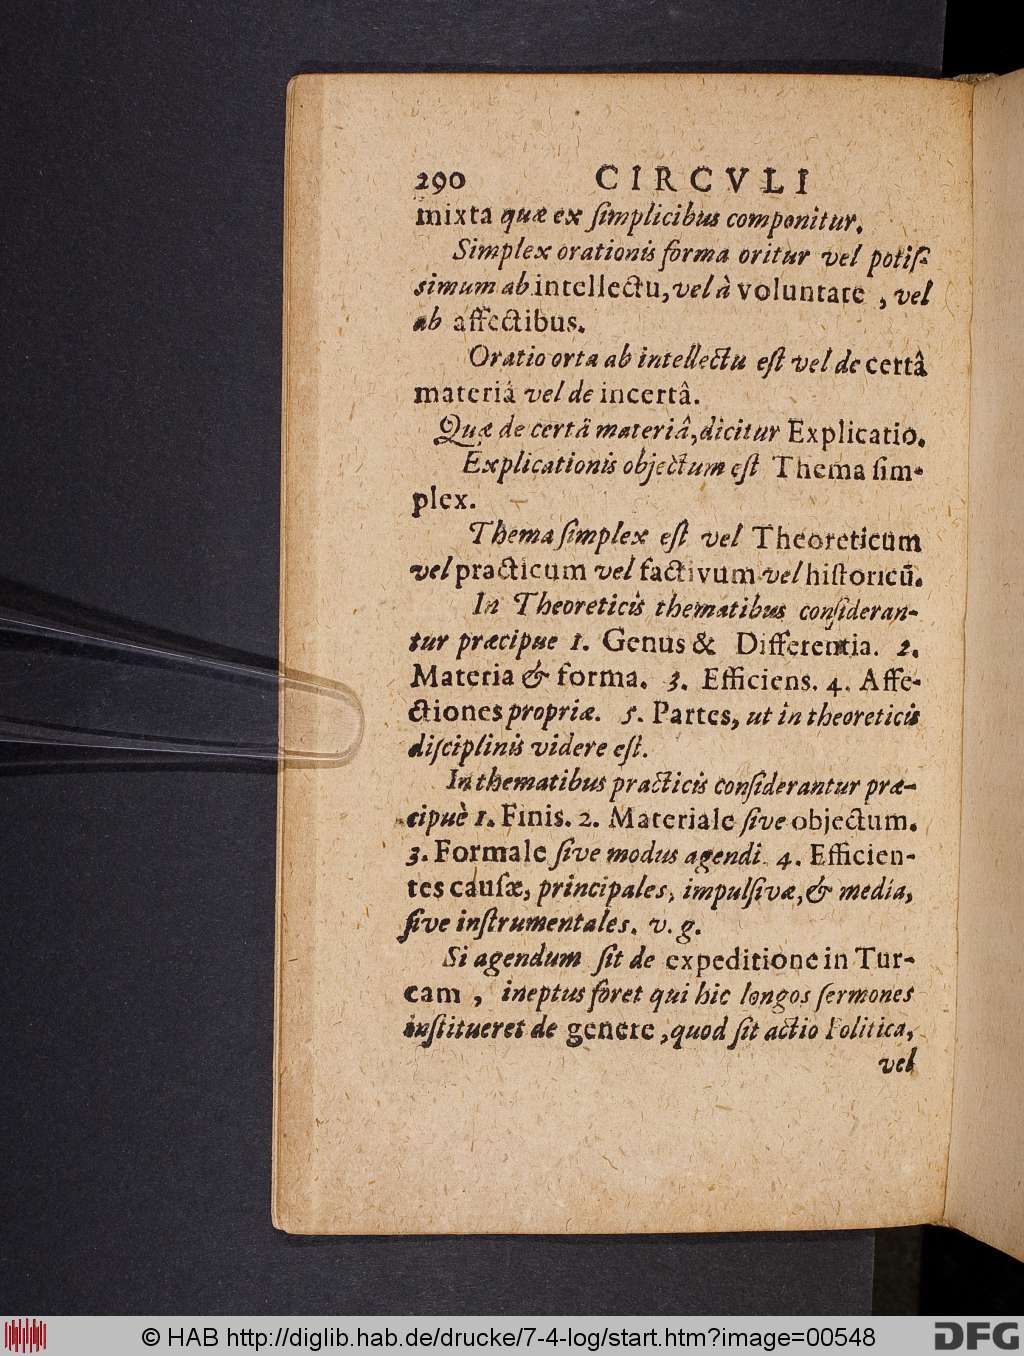 290 CIRCVLI
mixta quæ ex ſimplicibus componitur.
Simplex orationis forma oritur vel potiſ-
simum ab intellectu, vel à voluntate , vel
ab affectibus.
Oratio orta ab intellectu eſt vel de certâ
materiâ vel de incertâ.
Quæ de certâ materiâ, dicitur Explicatio.
Explicationis objectum eſt Thema ſim-
plex.
Thema ſimplex eſt vel Theoreticum
vel practicum vel factivum vel hiſtoricū.
In Theoreticis thematibus conſideran-
tur præcipue 1. Genus & Differentia. 2.
Materia & forma. 3. Efficiens. 4. Affe-
ctiones propriæ. 5. Partes, ut in theoreticis
diſciplinis videre eſt.
In thematibus practicis conſiderantur præ-
cipuè 1. Finis. 2. Materiale ſive objectum.
3. Formale ſive modus agendi. 4. Efficien-
tes cauſæ, principales, impulſivæ, & media,
ſive inſtrumentales. v. g.
Si agendum ſit de expeditione in Tur-
cam , ineptus foret qui hic longos ſermones
inſtitueret de genere, quod ſit actio Politica,
vel
© HAB http://diglib.hab.de/drucke/7-4-log/start.htm?image=00548 DFG